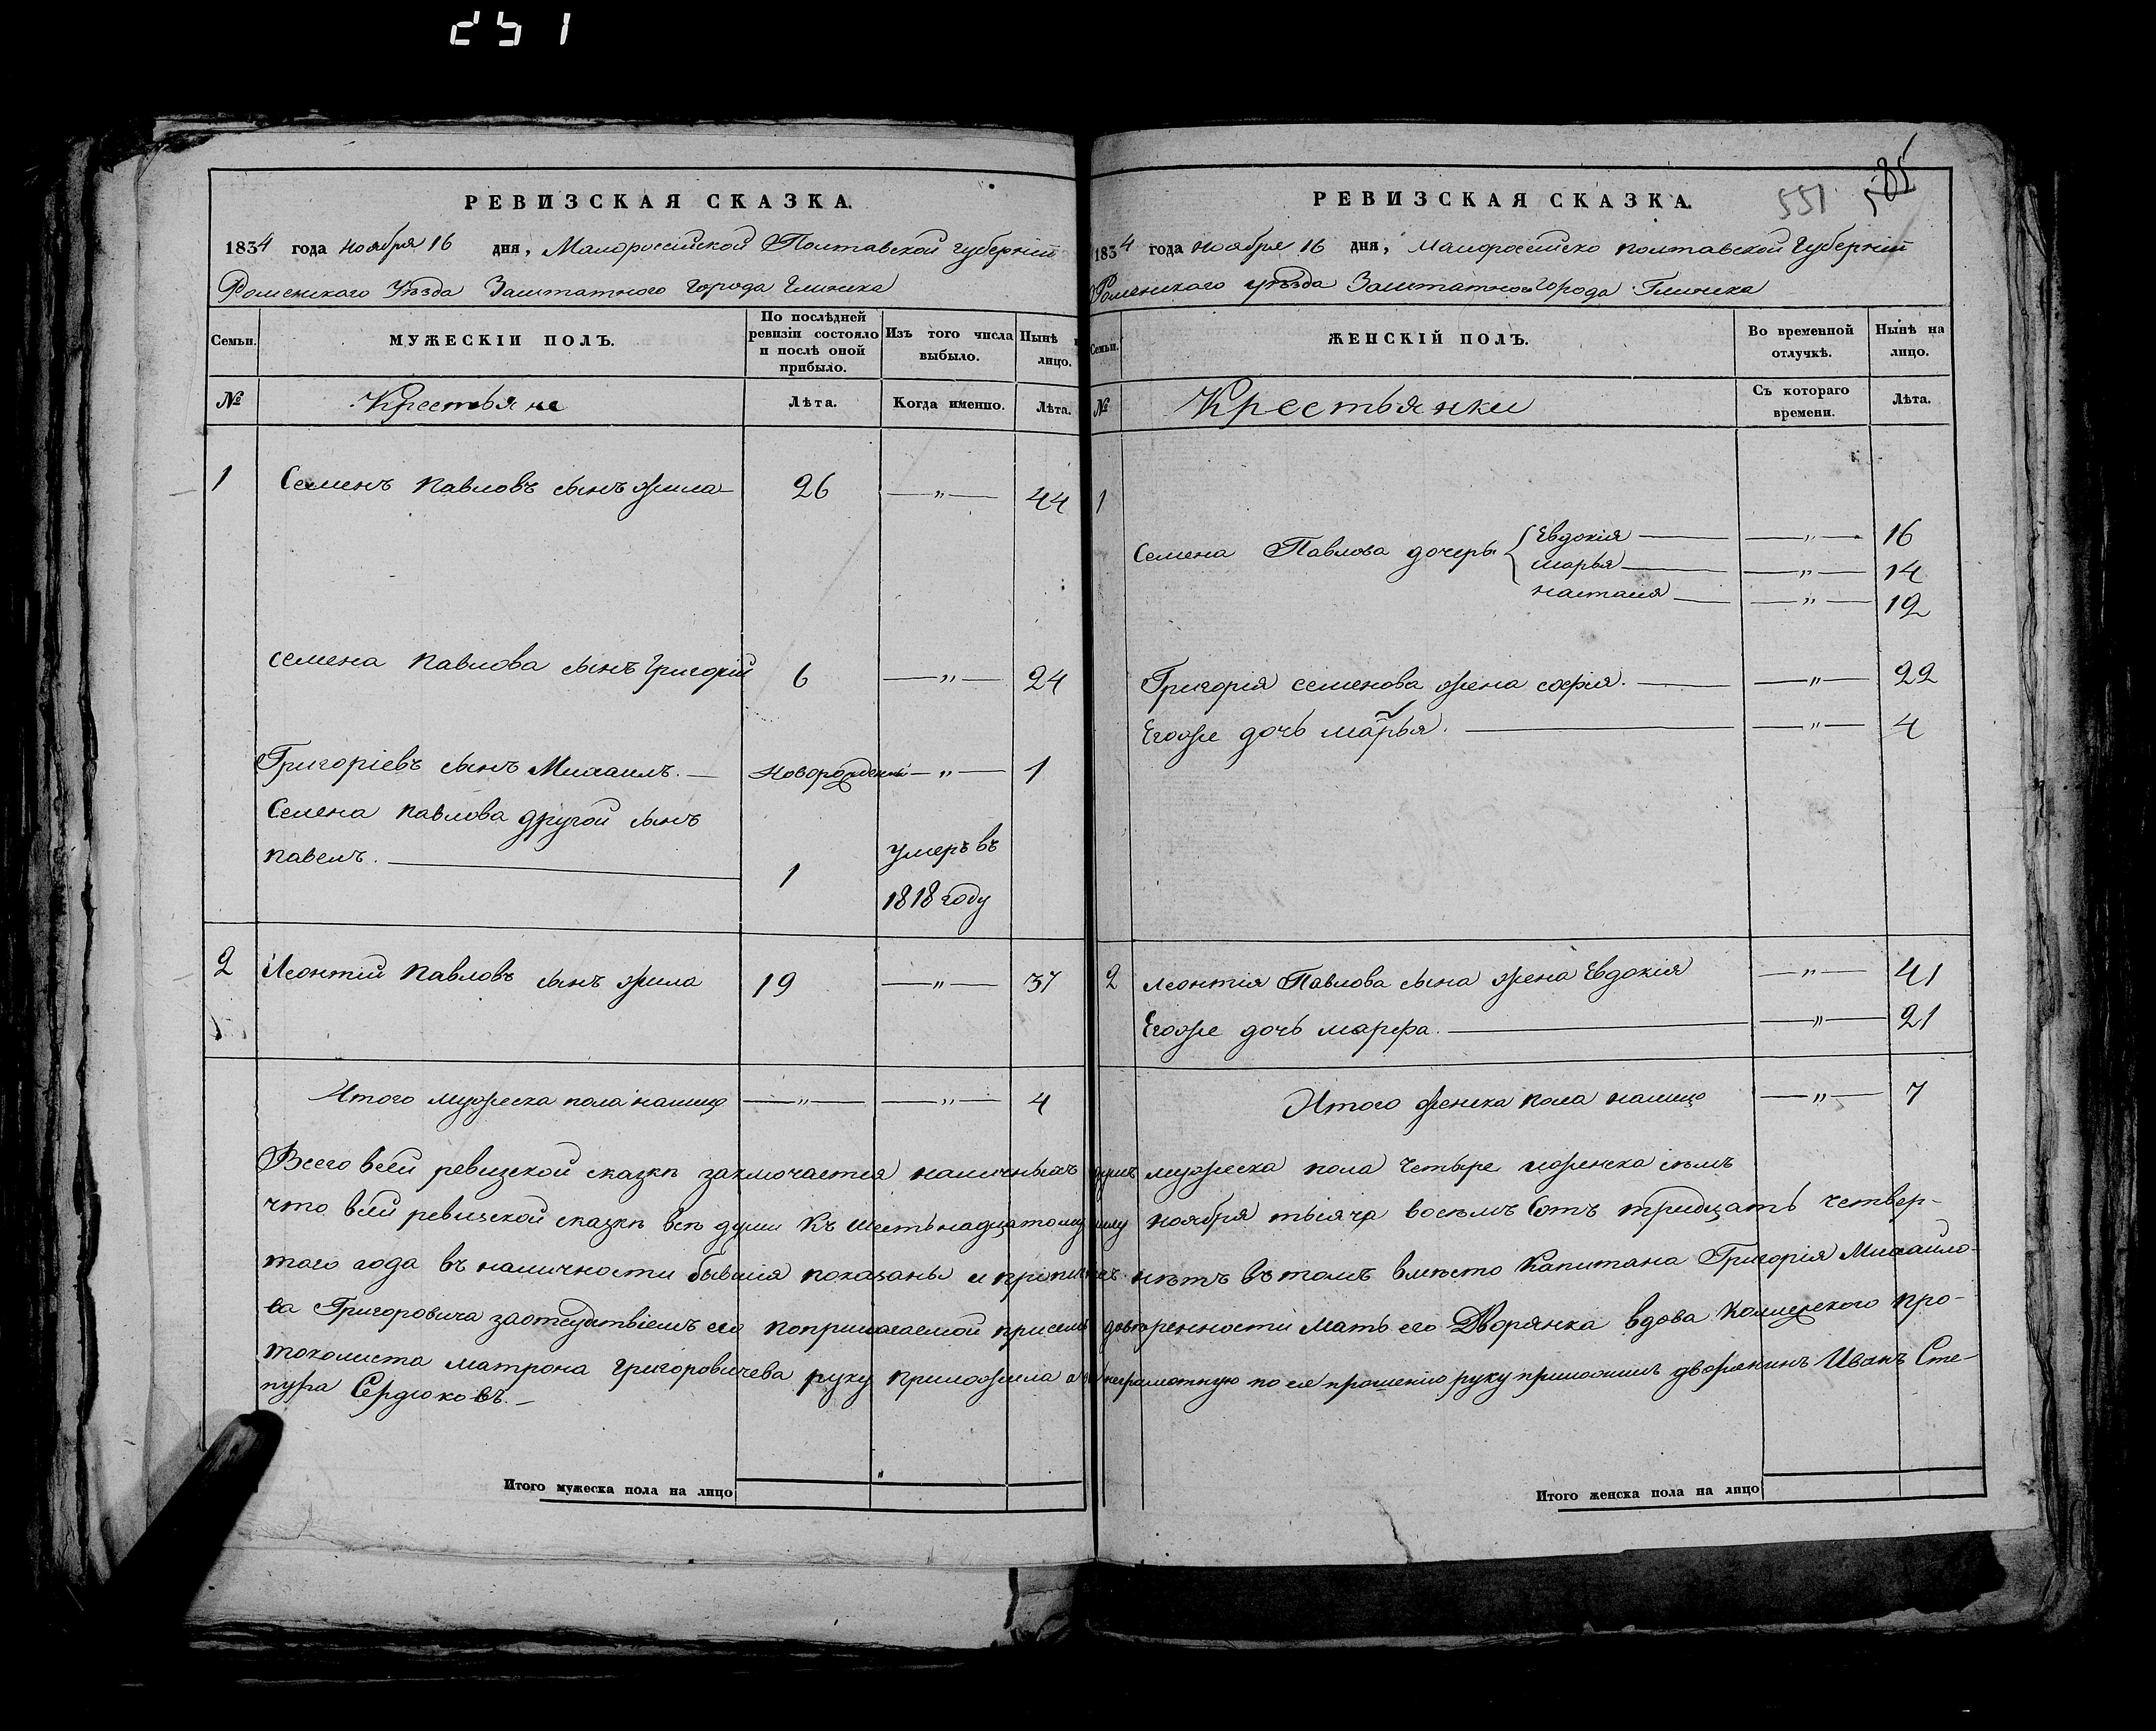 251
РЕВИЗСКАЯ СКАЗКА.
1834 года ноября 16 дня, Малороссійской Полтавской губерніи
Роменского Уѣзда Заштатного Города Глинска
Семьи. МУЖЕСКІЙ ПОЛЪ. По послѣдней ревизіи состояло и послѣ оной прибыло. Изъ того числа выбыло. Нынѣ лицо.
№ Крестьяне Лѣта. Когда именно. Лѣта.
1 Семенъ Павловъ сынъ жила 26 —"— 44
семена Павлова сынъ Григорій 6 —"— 24
Григоріевъ сынъ Михаилъ. — Новорожденный —"— 1
Семена Павлова другой сынъ
павелъ. 1 умеръ въ
1818 году
2 Леонтій Павловъ сынъ жила 19 —"— 37
Итого мужеска пола налицо —"— —"— 4
РЕВИЗСКАЯ СКАЗКА. 551 585
1834 года ноября 16 дня, малоросійско полтавской Губерніи
Роменского уѣзда Заштатного города Глинска
Семьи. ЖЕНСКІЙ ПОЛЪ. Во временной отлучкѣ. Нынѣ на лицо.
№ Крестьянки Съ котораго времени. Лѣта.
1
Семена Павлова дочеры Евдокія —"— 16
марья —"— 14
настасія —"— 12
Григорія семенова жена софія. —"— 22
Егоже дочь марья. —"— 4
2 леонтія Павлова сына жена Евдокія —"— 41
Егоже дочь марфа. —"— 21
Итого женска пола налицо —"— 7
Всего всей ревизской сказкѣ заключается наличныхъ душъ мужеска пола четыре иженска сѣмъ
что всей ревизской сказкѣ всѣ души къ шестьнадцатому числу ноября тысяча восѣмъ сотъ тридцать четвер-
таго года въ наличности бывшія показаны и нѣтъ въ томъ вмѣсто Капитана Григорія Михайло-
ва Григоровича заотсудствіемъ его поприлагаемой присемъ довѣренности мать его Дворянка вдова Колежского про-
токолиста матрона григоровичева руку приложила а неграмотную по ея прошенію руку приложилъ дворянинъ Иванъ Сте-
пура Сердюковъ. —
Итого мужеска пола на лицо
Итого женска пола на лицо